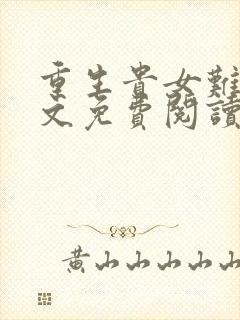 重生貴女難
文免費閱讀
黃山山山山